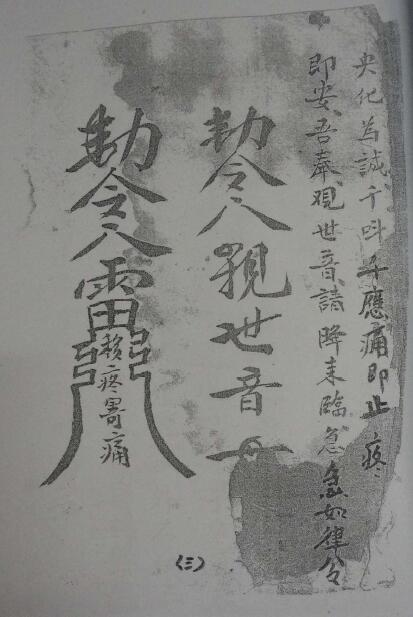 央化為誠千叫千應痛即止疼
即安吾奉觀世音請降來臨急急如律令
勅令八觀世音
勅令八雷
疼痛
(三)